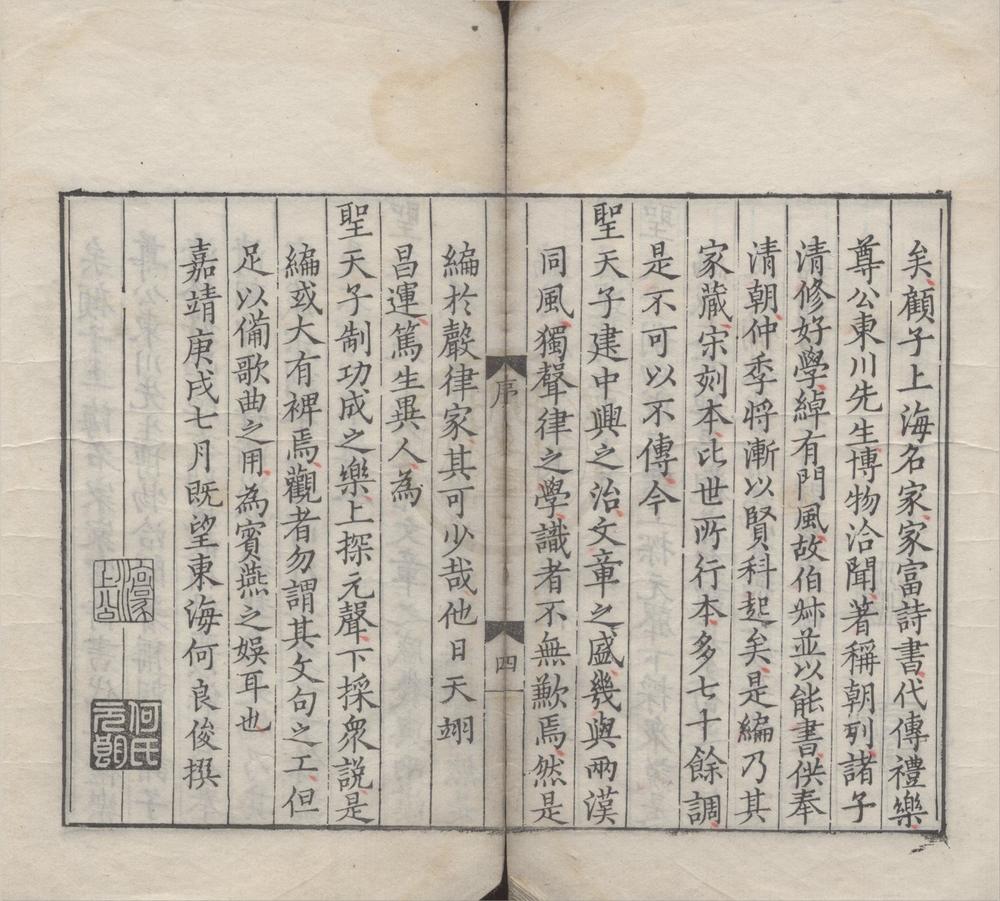 矣顧子上海名家家富詩書代傳禮樂
尊公東川先生博物洽聞著稱朝列諸子
清修好學綽有門風故伯叔並以能書供奉
清朝仲季將漸以賢科起矣是編乃其
家藏宋刻本比世所行本多七十餘調
是不可以不傳今
聖天子建中興之治文章之盛幾與兩漢
同風獨聲律之學識者不無歉焉然是
序
四
編於聲律家其可少哉他日天翊
昌運篤生異人為
聖天子制功成之樂上探元聲下採衆說是
編或大有裨焉觀者勿謂其文句之工但
足以備歌曲之用為賓燕之娛耳也
嘉靖庚戌七月既望東海何良俊撰
何氏元朗